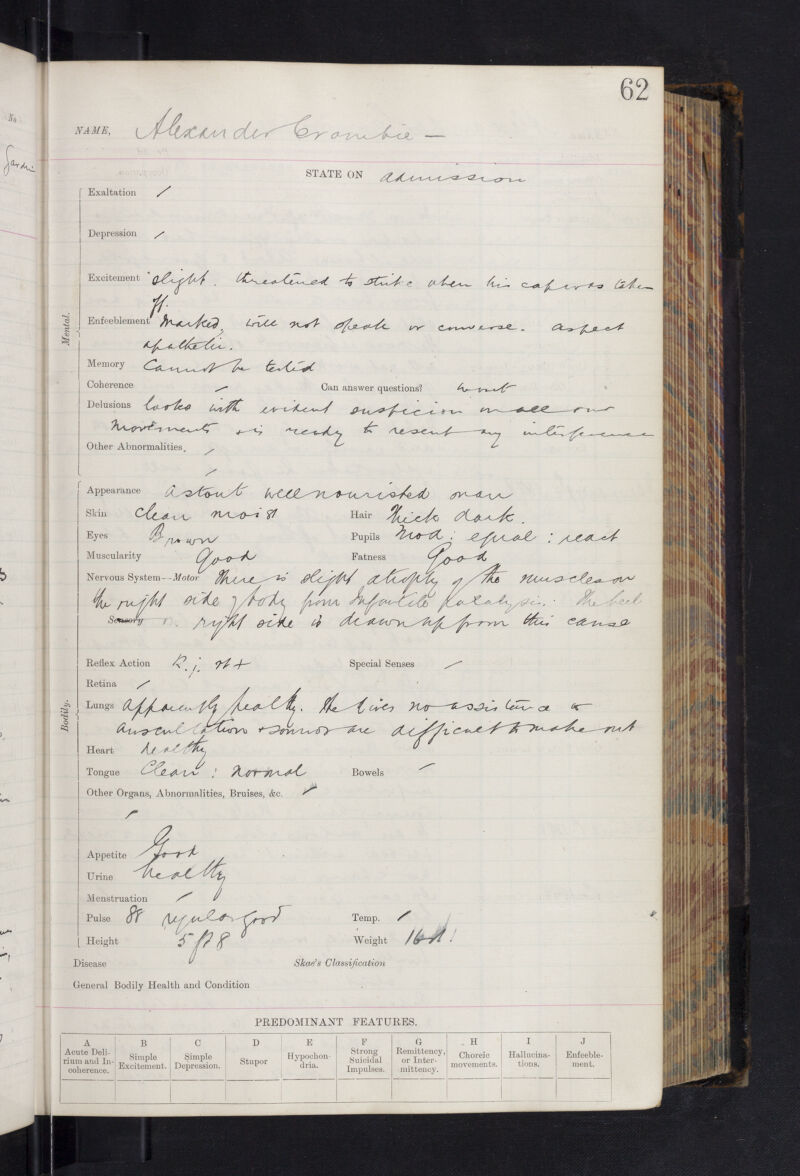 62
No
NAME, Alexander Crombie —
Gardn
STATE ON admission
Mental.
Exaltation /
Depression /
Excitement slight. threatened to strike when his cap was taken
off.
Enfeeblement marked, will not speak or converse. aspect
apathetic.
Memory Cannot be tested
Coherence / Can answer questions? wont
Delusions looks with evident suspicion on all our
movements & is ready to resent any interference
Other Abnormalities. /
/
Bodily.
Appearance a stout well nourished man
Skin clean moist Hair thick dark.
Eyes Brown Pupils Mod: equal: react
Muscularity Good Fatness Good
Nervous System--Motor There is slight atrophy of the muscles on
the right side of body from Infantile paralysis. The heel
Sensory on right side is drawn up from this cause
Reflex Action K.j. rt + Special Senses /
Retina /
Lungs apparently healthy. He gives no assistance to
auscultation & sounds are difficult to make out
Heart healthy
Tongue Clean: normal Bowels /
Other Organs, Abnormalities, Bruises, &c. /
/
Appetite Good
Urine healthy
Menstruation /
Pulse 88 regular good Temp. /
Height 5 ft 8 Weight
Disease Skae's Classification
General Bodily Health and Condition
PREDOMINANT FEATURES.
A B C D E F G H I J
Acute Delirium and Incoherence. Simple Excitement. Simple Depression. Stupor Hypochondria. Strong Suicidal Impulses. Remittency, or Intermittency. Choreic movements. Hallucinations. Enfeeblement.